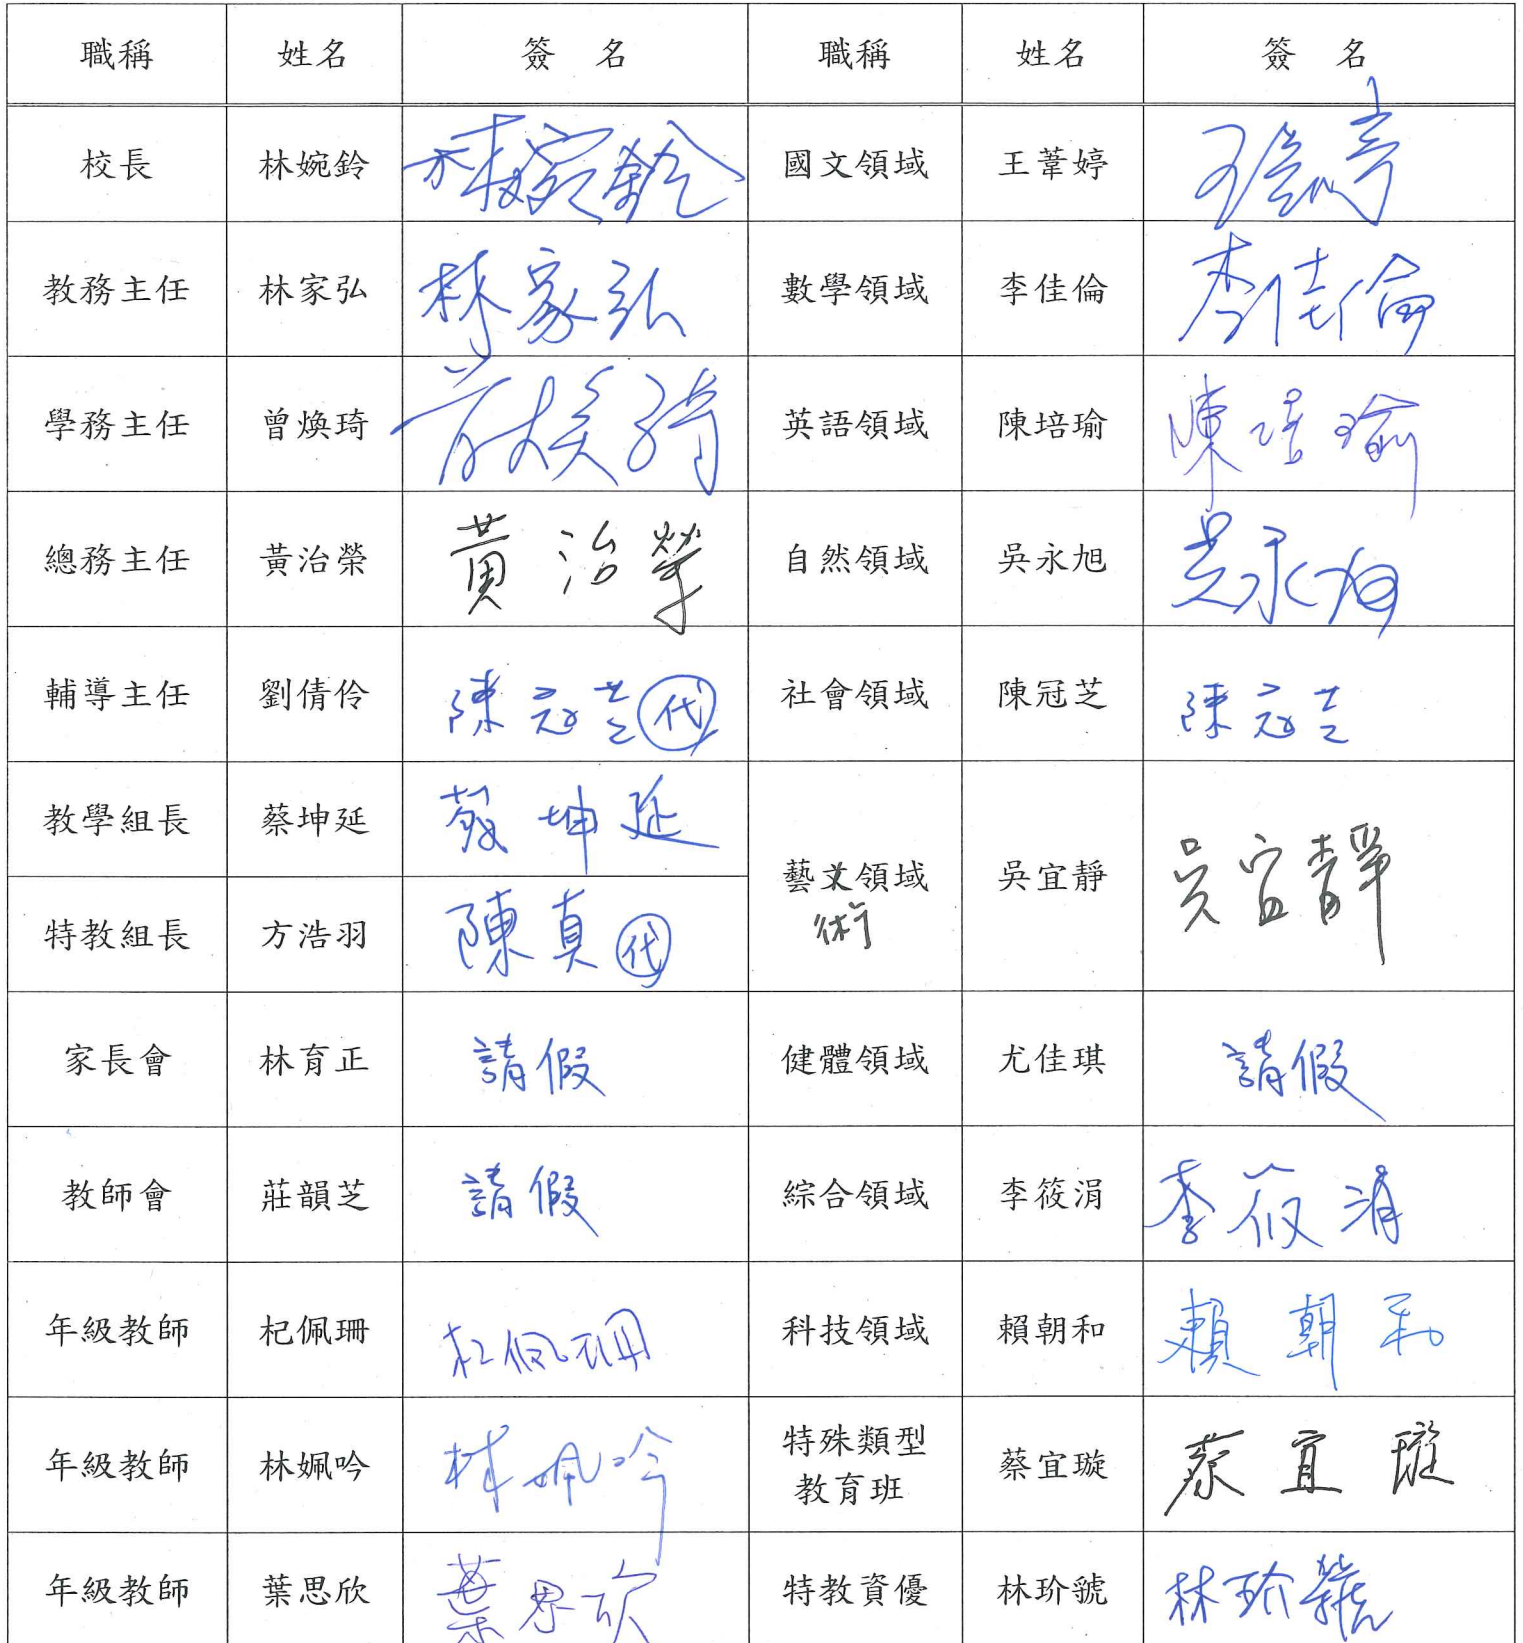 職稱 姓名 簽 名 職稱 姓名 簽 名
校長 林婉鈴 林婉鈴 國文領域 王葦婷 王葦婷
教務主任 林家弘 林家弘 數學領域 李佳倫 李佳倫
學務主任 曾煥琦 曾煥琦 英語領域 陳培瑜 陳培瑜
總務主任 黃治榮 黃治榮 自然領域 吳永旭 吳永旭
輔導主任 劉倩伶 陳冠芝 代 社會領域 陳冠芝 陳冠芝
教學組長 蔡坤延 蔡坤延 藝文領域 吳宜靜 吳宜靜
術
特教組長 方浩羽 陳真 代
家長會 林育正 請假 健體領域 尤佳琪 請假
教師會 莊韻芝 請假 綜合領域 李筱涓 李筱涓
年級教師 杞佩珊 杞佩珊 科技領域 賴朝和 賴朝和
年級教師 林姵吟 林姵吟 特殊類型 蔡宜璇 蔡宜璇
教育班
年級教師 葉思欣 葉思欣 特教資優 林玠虢 林玠虢